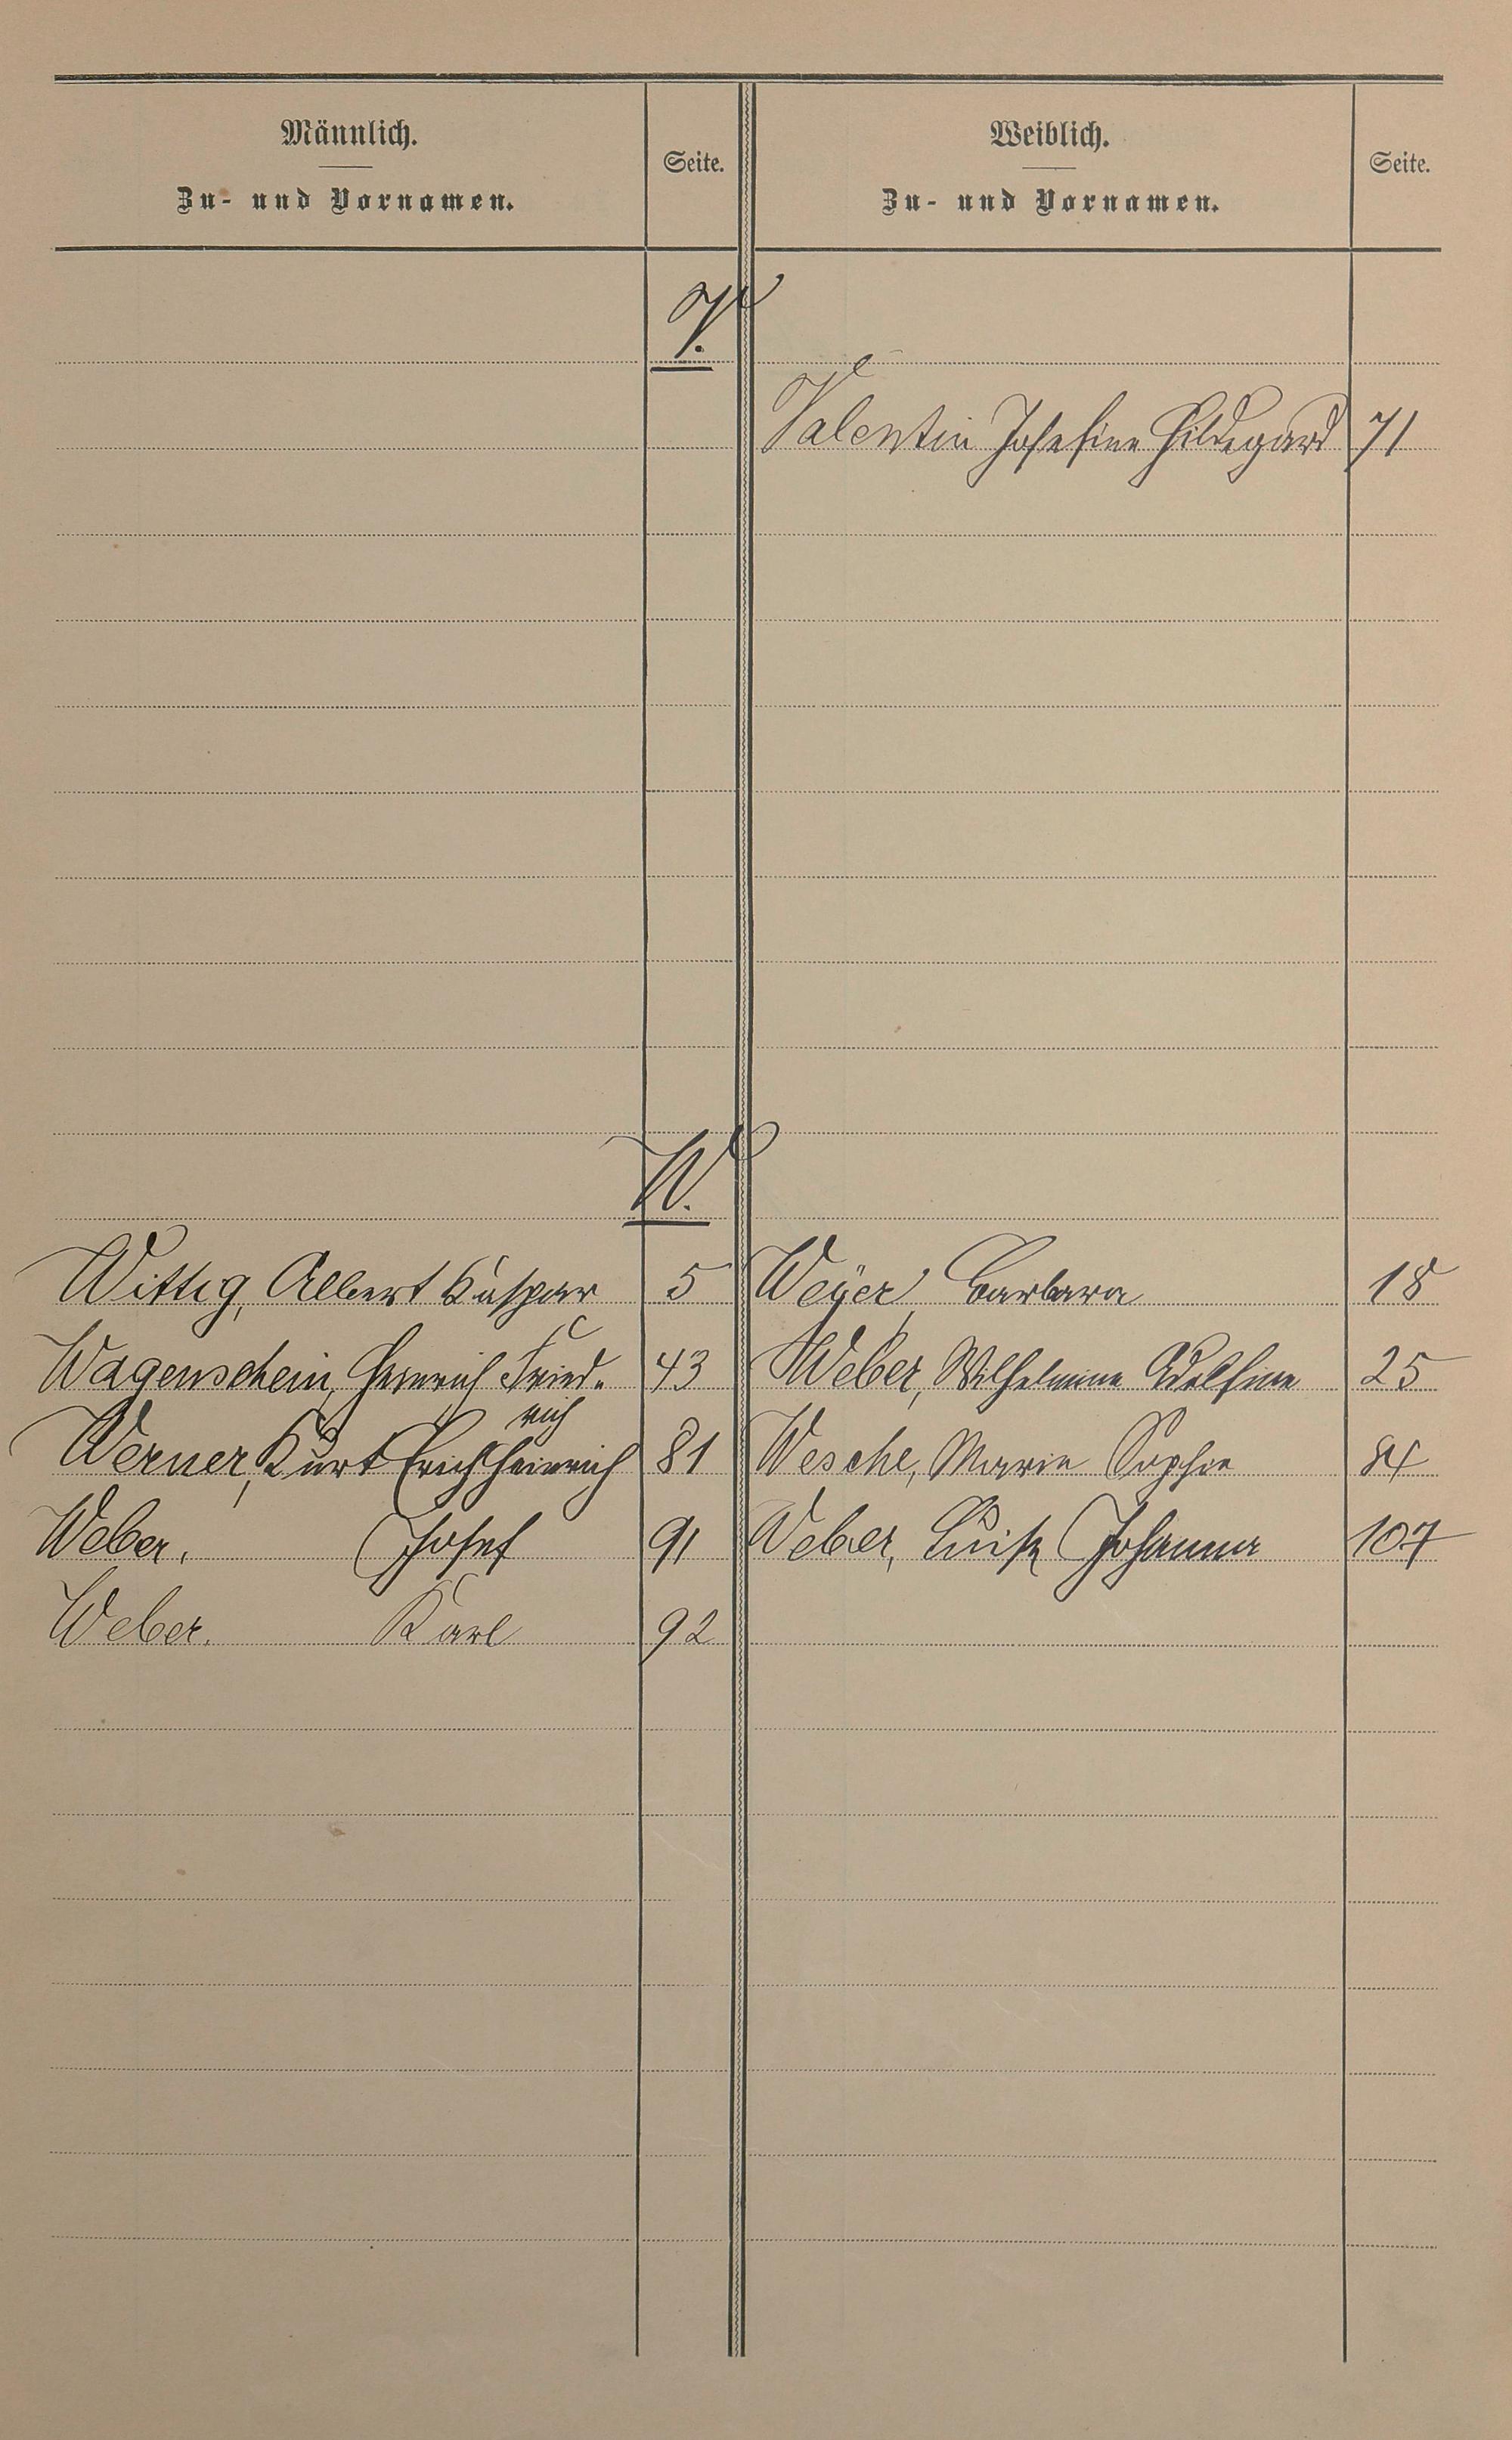 Männlich.
Zu- und Vornamen.
Seite.
Weiblich.
Zu- und Vornamen.
Seite.
V.
Valentin Josefine Hildegard 71
W.
Wittig, Albert Kaspar 5 Weÿer, Barbara 18
Wagenschein, Heinrich Fried- 43 Weber, Wilhelmine Adelfine 25
rich
Werner, Kurt Erich Heinrich 81 Wesche, Marie Sophie 84
Weber, Josef 91 Weber, Luise Johanna 107
Weber. Karl 92